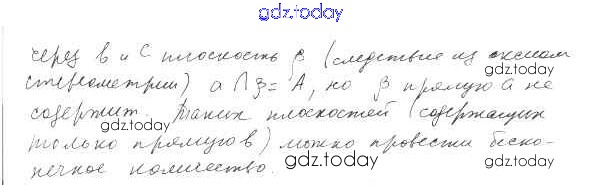 gdz.today
через b и C плоскость β (следствие из аксиом
gdz.today
стереометрии) a ∩ β = A, но β прямую a не
содержит. Таких плоскостей (содержащих
gdz.today
gdz.today
только прямую b) можно провести беско-
нечное количество.
gdz.today
gdz.today